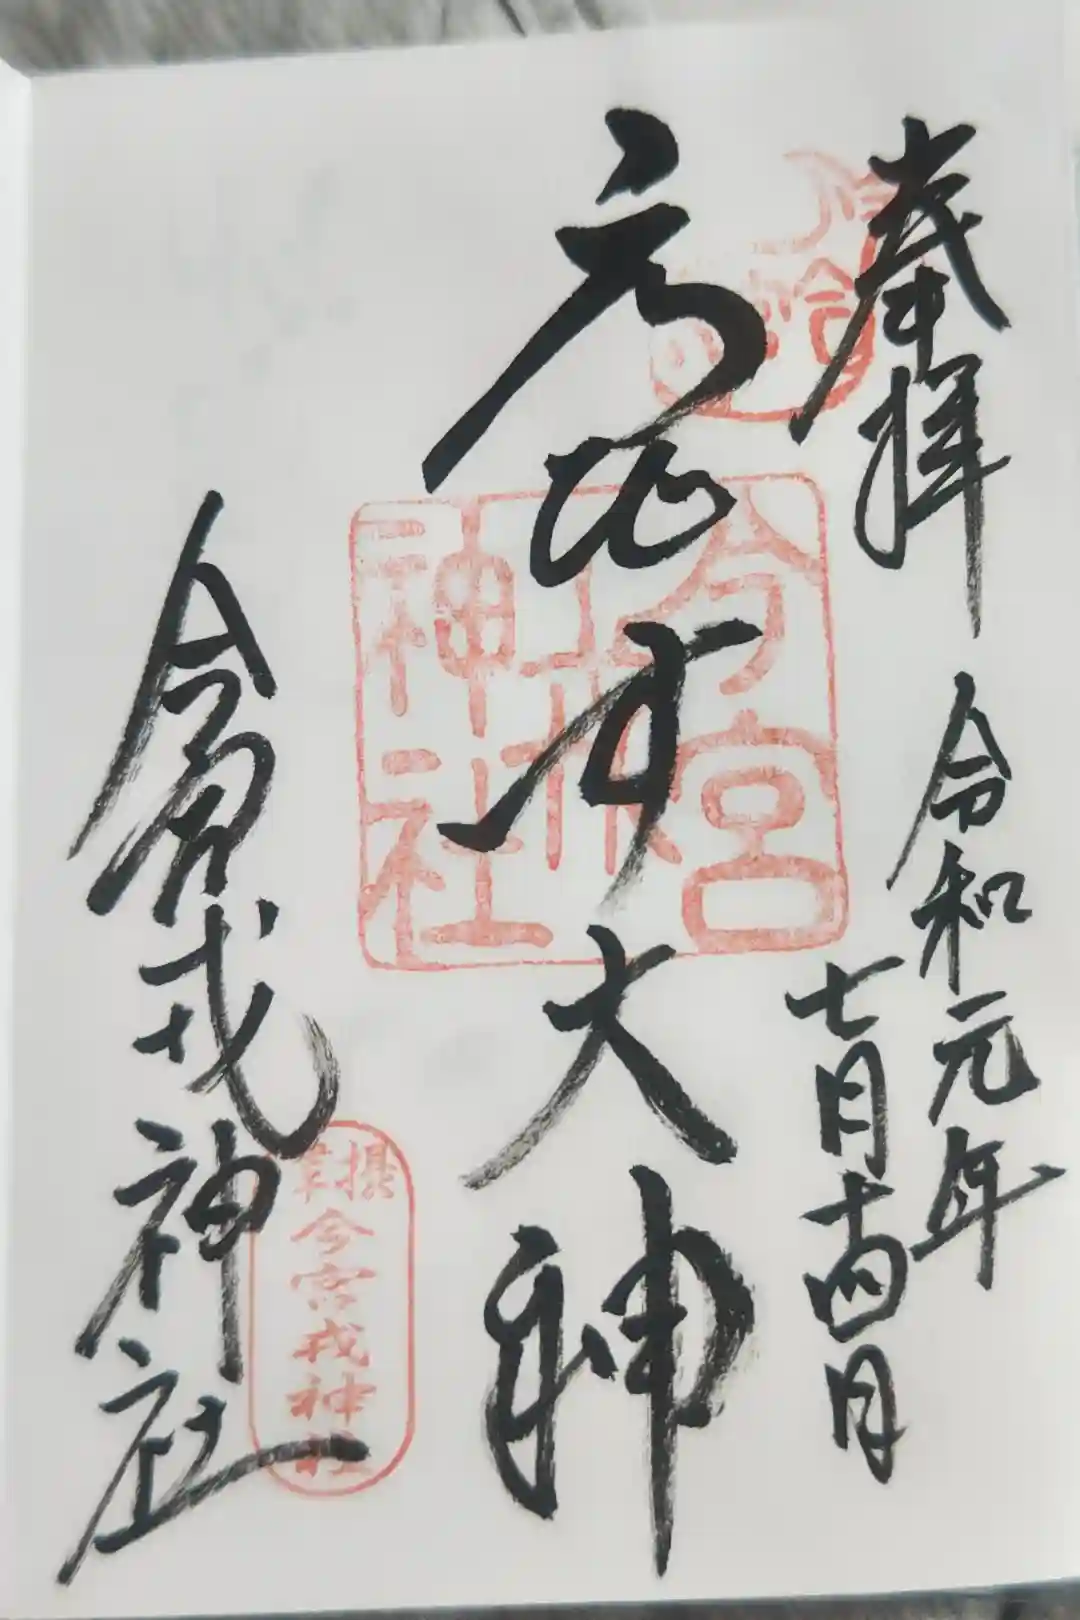 奉拝
令和元年
七月十四日
え比す大神
今宮戎神社
今宮
戎
神社
今宮戎神社